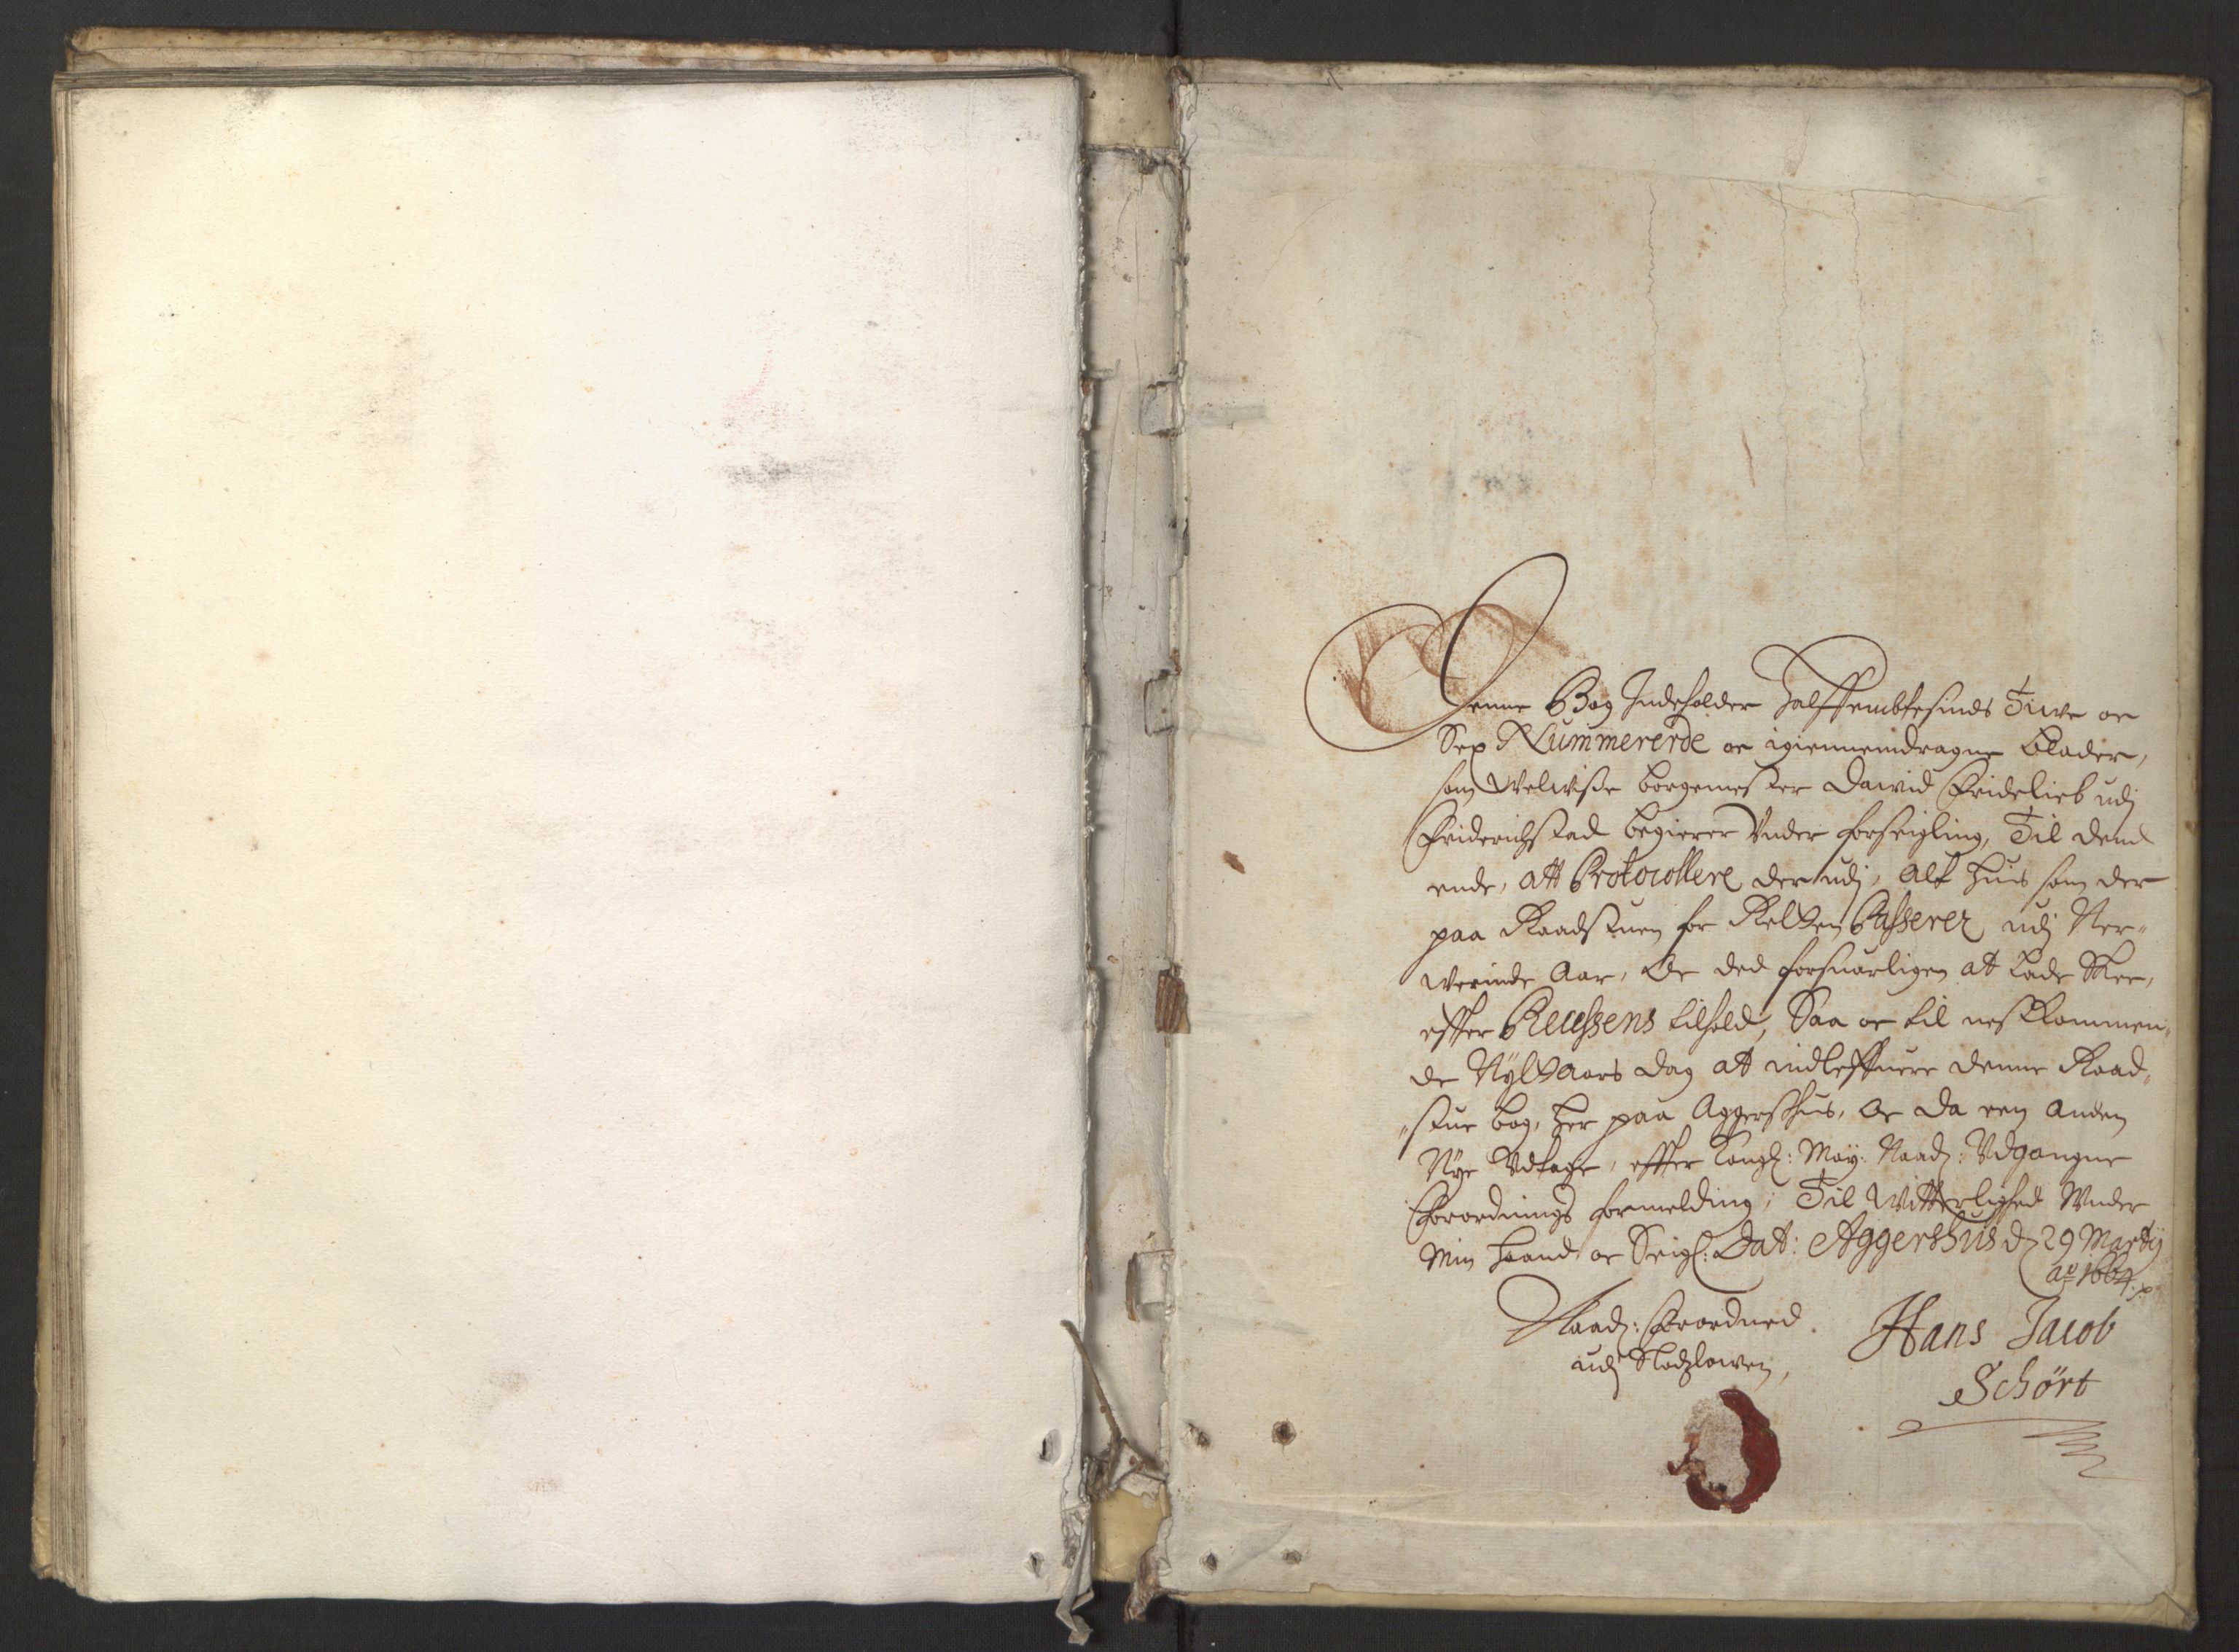 Denne Bog Indeholder Halffembtesinds Tiuve oc
Sex Nummererde oc igiennemdragne blader,
som Welwise borgemester Dawid Fridelieb udj
Friderichstad begierer Vnder forseigling, Til dend
ende, att Protocollere der udj, Alt huis som der
paa Raadstuen for Retten Passerer udj Ner-
werinde Aar, Oc ded forsuarligen at lade Skee,
effter Recessens tilhold, Saa oc til nestkommen-
de Nyttaars dag at indleffuere denne Raad-
stue bog, her paa Aggershus, Oc da een anden
Nye Vdtage, effter Kongl: May: Naad: Vdgangne
Forordnings formelding, Til Witterlighed Vnder
Min haand oc Seigl: Dat: Aggershuus d 29 Martij
Ao 1664.
Naad: Forordned
udj Slodzlowen,
Hans Jacob
Schört